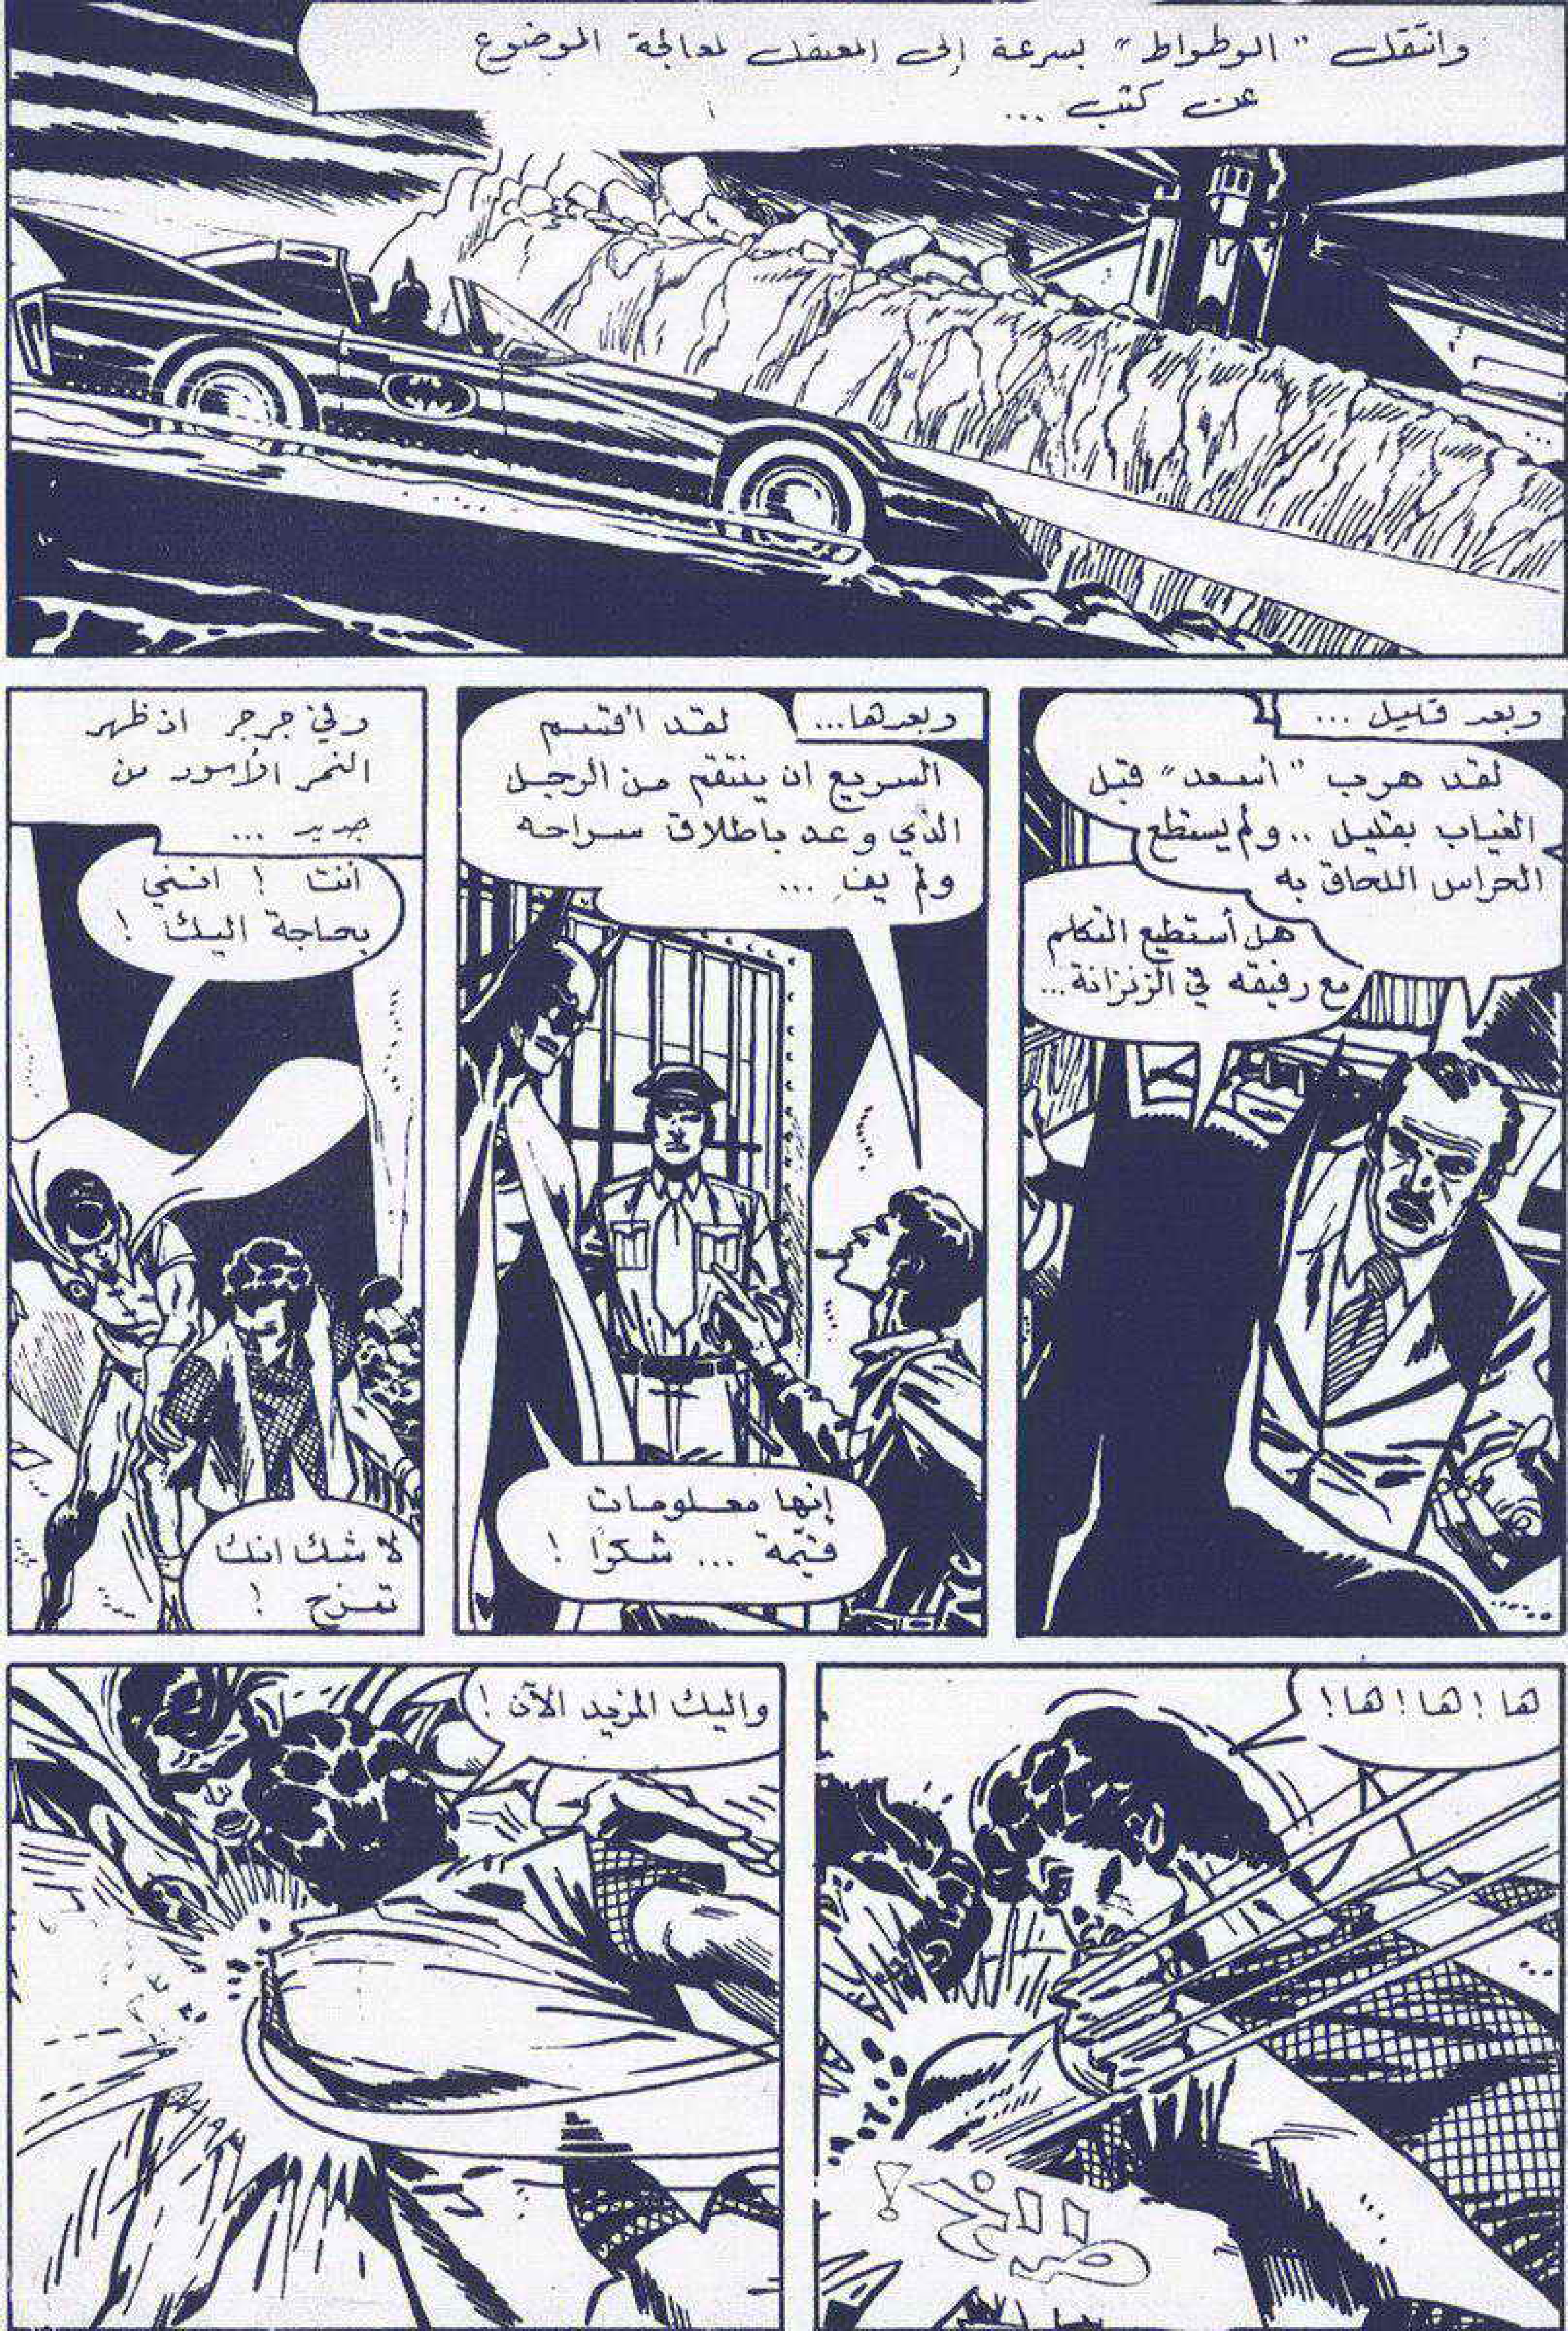 وانتقل "الوطواط" بسرعة إلى المعتقل لمعالجة الموضوع
عن كثب ...
وبعد قليل ...
لقد هرب "أسعد" قبل
الغياب بقليل .. ولم يستطع
الحراس اللحاق به
هل أستطيع التكلم
مع رفيقه في الزنزانة ...
وبعدها ...
لقد أقسم
السريع ان ينتقم من الرجل
الذي وعد باطلاق سراحه
ولم يفِ ...
إنها معلومات
قيّمة ... شكرًا !
وفي جرجر اذ ظهر
النمر الأسود من
جديد ...
أنت ! انني
بحاجة اليك !
لا شك انك
تمزح !
ها ! ها ! ها !
واليك المزيد الآن !